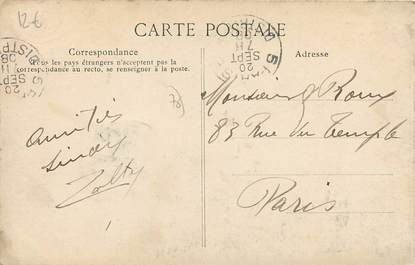 12€
CARTE POSTALE
Correspondance
Tous les pays étrangers n'acceptent pas la
correspondance au recto, se renseigner à la poste.
Adresse
Amitiés
78
Monsieur Roux
83 Rue du Temple
Paris